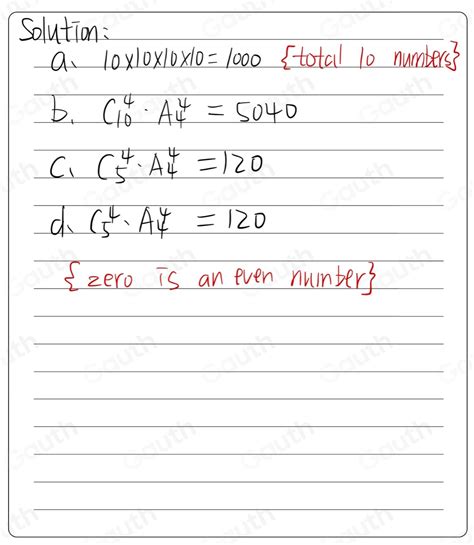 Solution:
a. 10×10×10×10=1000 {total 10 numbers}
b. C₁₀⁴·A₄⁴ = 5040
c. C₅⁴·A₄⁴ = 120
d. C₅⁴·A₄⁴ = 120
{zero is an even number}
Gauth